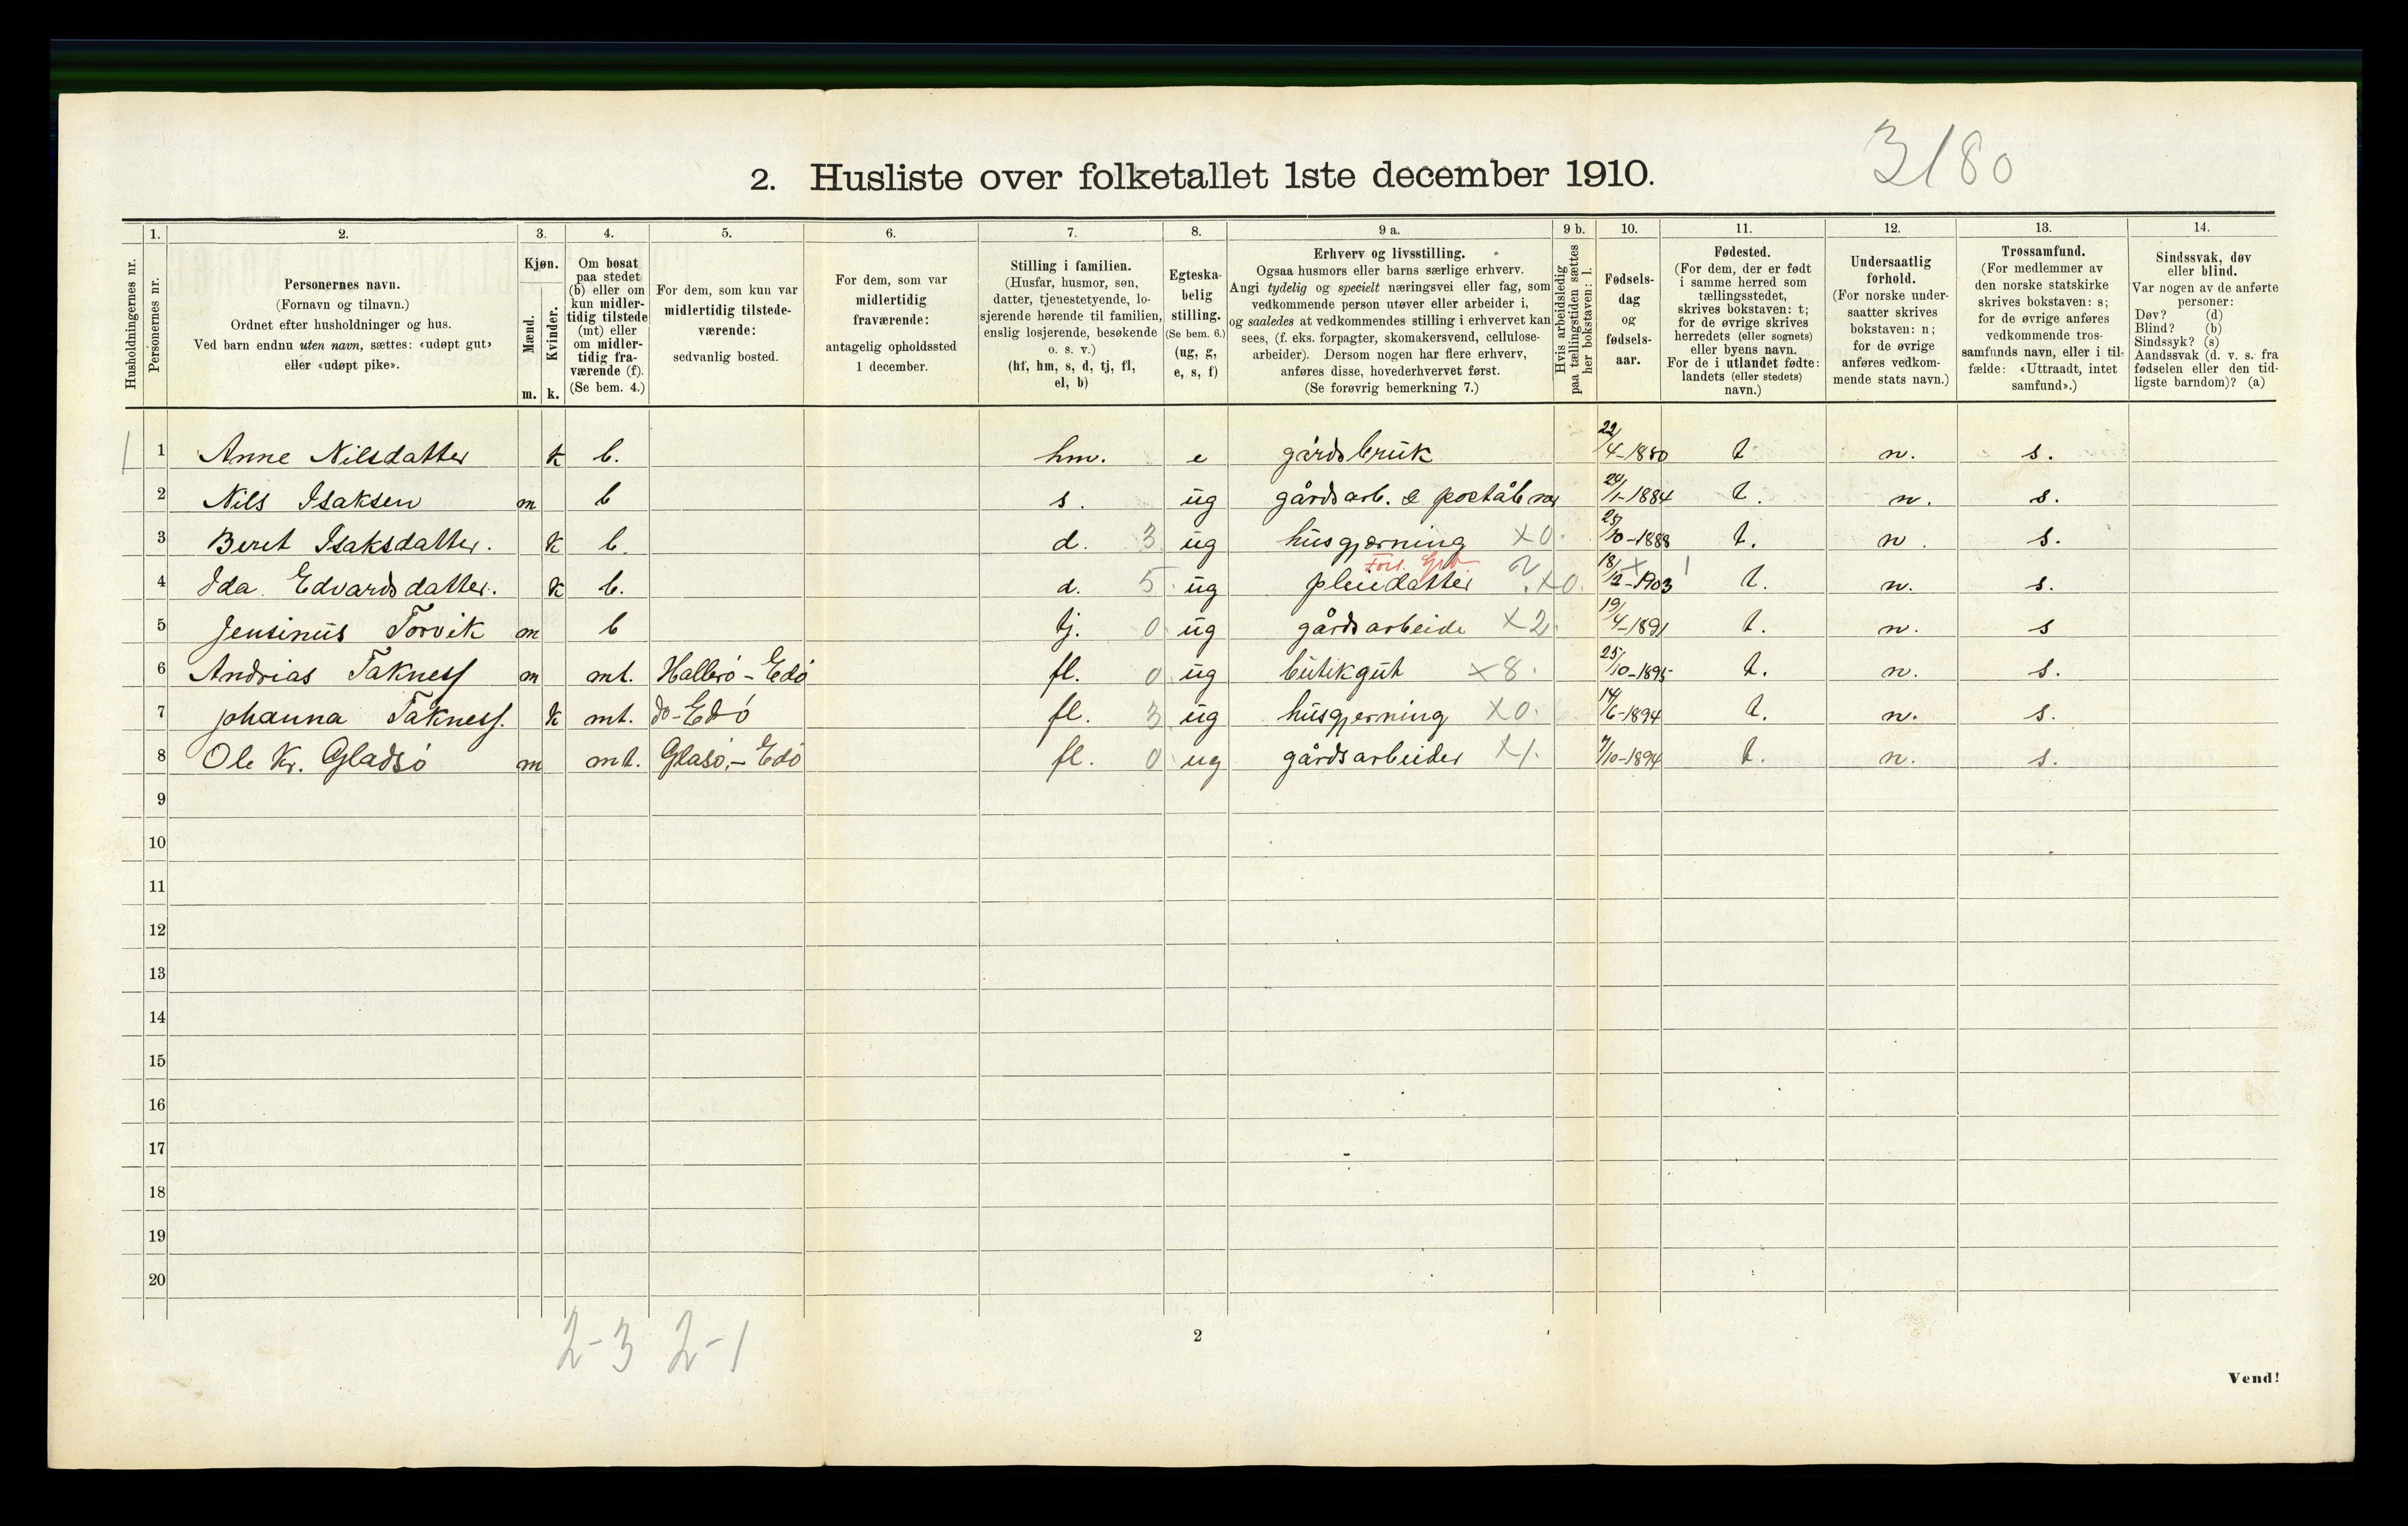 3180
2. Husliste over folketallet 1ste december 1910.
Husholdningernes nr.
1.
Personernes nr.
2.
Personernes navn.
(Fornavn og tilnavn.)
Ordnet efter husholdninger og hus.
Ved barn endnu uten navn, sættes: «udøpt gut»
eller «udøpt pike».
3.
Kjøn.
Mænd.
Kvinder.
m. k.
4.
Om bosat
paa stedet
(b) eller om
kun midler-
tidig tilstede
(mt) eller
om midler-
tidig fra-
værende (f).
(Se bem. 4.)
5.
For dem, som kun var
midlertidig tilstede-
værende:
sedvanlig bosted.
6.
For dem, som var
midlertidig
fraværende:
antagelig opholdssted
1 december.
7.
Stilling i familien.
(Husfar, husmor, søn,
datter, tjenestetyende, lo-
sjerende hørende til familien,
enslig losjerende, besøkende
o. s. v.)
(hf, hm, s, d, tj, fl,
el, b)
8.
Egteska-
belig
stilling.
(Se bem. 6.)
(ug, g,
e, s, f)
9 a.
Erhverv og livsstilling.
Ogsaa husmors eller barns særlige erhverv.
Angi tydelig og specielt næringsvei eller fag, som
vedkommende person utøver eller arbeider i,
og saaledes at vedkommendes stilling i erhvervet kan
sees, (f. eks. forpagter, skomakersvend, cellulose-
arbeider). Dersom nogen har flere erhverv,
anføres disse, hovederhvervet først.
(Se forøvrig bemerkning 7.)
9 b.
Hvis arbeidsledig
paa tællingstiden sættes
her bokstaven: l.
10.
Fødsels-
dag
og
fødsels-
aar.
11.
Fødested.
(For dem, der er født
i samme herred som
tællingsstedet,
skrives bokstaven: t;
for de øvrige skrives
herredets (eller sognets)
eller byens navn.
For de i utlandet fødte:
landets (eller stedets)
navn.)
12.
Undersaatlig
forhold.
(For norske under-
saatter skrives
bokstaven: n;
for de øvrige
anføres vedkom-
mende stats navn.)
13.
Trossamfund.
(For medlemmer av
den norske statskirke
skrives bokstaven: s;
for de øvrige anføres
vedkommende tros-
samfunds navn, eller i til-
fælde: «Uttraadt, intet
samfund».)
14.
Sindssvak, døv
eller blind.
Var nogen av de anførte
personer:
Døv? (d)
Blind? (b)
Sindssyk? (s)
Aandssvak (d. v. s. fra
fødselen eller den tid-
ligste barndom)? (a)
1 1 Anne Nilsdatter k b. hm. e gårdsbruk 22/4-1850 t n. s.
2 Nils Isaksen m b s. ug gårdsarb. & poståbner 24/1-1884 t. n. s.
3 Beret Isaksdatter. k b. d. 3 ug husgjærning x0. 25/10-1888 t. n. s.
4 Ida Edvardsdatter. k b. d. 5 ug pleiedatter x0. 18/12-1903 t. n. s.
5 Jensinus Torvik m b tj. 0 ug gårdsarbeide x2. 19/4-1891 t. n. s
6 Andrias Takness m mt. Hallerö-Edö fl. 0 ug butikgut x8. 25/10-1895 t. n. s.
7 Johanna Takness. k mt. do-Edö fl. 3 ug husgjerning x0. 14/6-1894 t. n. s.
8 Ole Kr. Gladsö m mt. Glasö,- Edö fl. 0 ug gårdsarbeider x1. 7/10-1894 t. n. s.
9
10
11
12
13
14
15
16
17
18
19
20
2-3 2-1
2
Vend!